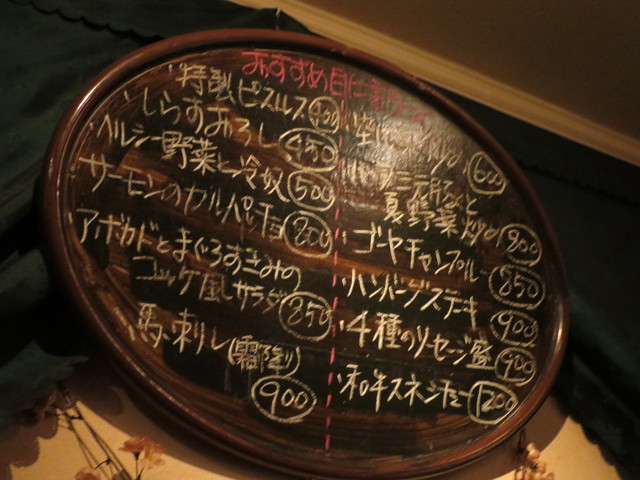 おすすめ
特製ピスルス
しらすおろし 450
ヘルシー野菜と冷奴 500
サーモンのカルパチョ 800
アボカドとまぐろすきみの
コッケ風サラダ 850
馬刺し(霜降り)
900
夏野菜炒め 800
ゴーヤチャンプルー 850
ハンバーグステキ 900
4種のソセージ盛 900
和牛スネシチュー 1200